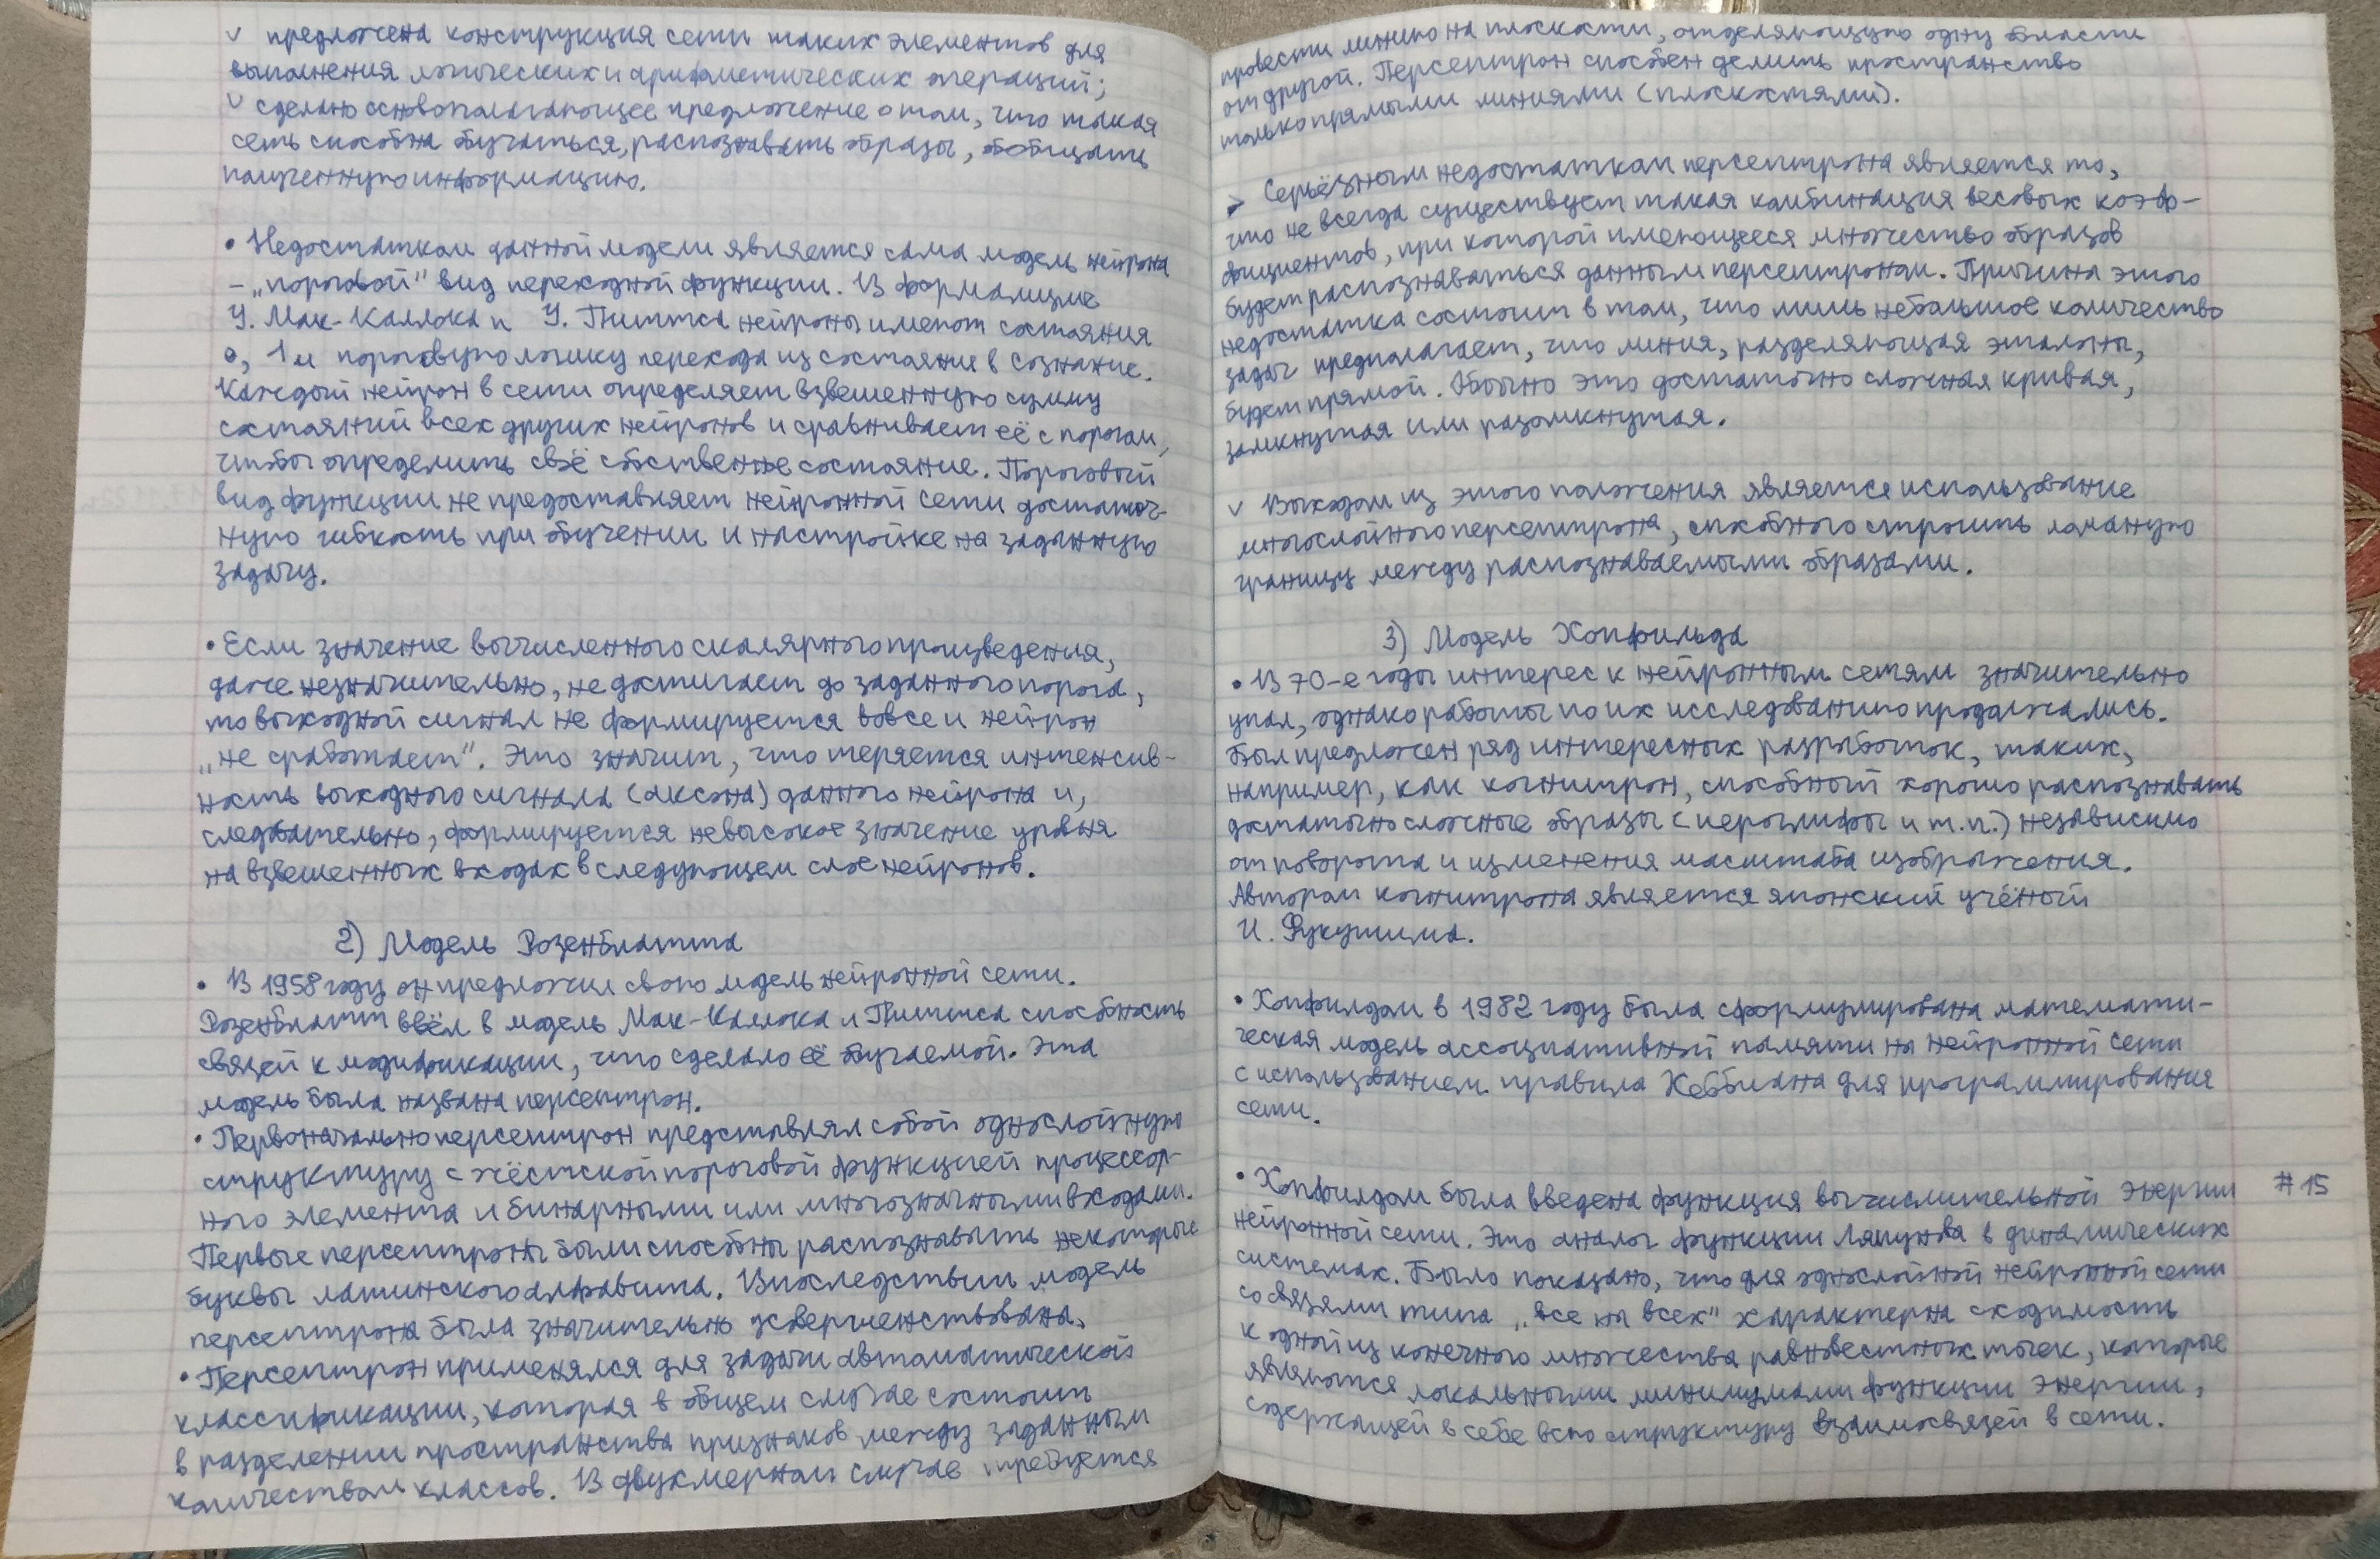 v предложена конструкция сети таких элементов для
выполнения логических и арифметических операций;
v сделано основополагающее предложение о том, что такая
сеть способна обучаться, распознавать образы, обобщать
полученную информацию.
• Недостатком данной модели является сама модель нейрона
– „пороговой" вид переходной функции. В формализме
У. Мак-Каллока и У. Питтса нейроны имеют состояния
0, 1 и пороговую логику перехода из состояние в сознание.
Каждый нейрон в сети определяет взвешенную сумму
состояний всех других нейронов и сравнивает её с порогом,
чтобы определить своё собственное состояние. Пороговый
вид функции не предоставляет нейронной сети достаточ-
ную гибкость при обучении и настройке на заданную
задачу.
• Если значение вычисленного скалярного произведения,
даже незначительно, не достигает до заданного порога,
то выходной сигнал не формируется вовсе и нейрон
„не сработает". Это значит, что теряется интенсив-
ность выходного сигнала (аксона) данного нейрона и,
следовательно, формируется невысокое значение уровня
на взвешенных входах в следующем слое нейронов.
2) Модель Розенблатта
• В 1958 году он предложил свою модель нейронной сети.
Розенблатт ввёл в модель Мак-Каллока и Питтса способность
связей к модификации, что сделало её обучаемой. Эта
модель была названа персептрон.
• Первоначально персептрон представлял собой однослойную
структуру с жёсткой пороговой функцией процессор-
ного элемента и бинарными или многозначными входами.
Первые персептроны были способны распознавать некоторые
буквы латинского алфавита. Впоследствии модель
персептрона была значительно усовершенствована.
• Персептрон применялся для задачи автоматической
классификации, которая в общем случае состоит
в разделении пространства признаков между заданным
количеством классов. В двухмерном случае требуется
провести линию на плоскости, отделяющую одну область
от другой. Персептрон способен делить пространство
только прямыми линиями (плоскостями).
➢ Серьёзным недостатком персептрона является то,
что не всегда существует такая комбинация весовых коэф-
фициентов, при которой имеющееся множество образов
будет распознаваться данным персептроном. Причина этого
недостатка состоит в том, что лишь небольшое количество
задач предполагает, что линия, разделяющая эталоны,
будет прямой. Обычно это достаточно сложная кривая,
замкнутая или разомкнутая.
v Выходом из этого положения является использование
многослойного персептрона, способного строить ломаную
границу между распознаваемыми образами.
3) Модель Хопфильда
• В 70-е годы интерес к нейронным сетям значительно
упал, однако работы по их исследованию продолжались.
Был предложен ряд интересных разработок, таких,
например, как когнитрон, способный хорошо распознавать
достаточно сложные образы (иероглифы и т.п.) независимо
от поворота и изменения масштаба изображения.
Автором когнитрона является японский учёный
И. Фукушима.
• Хопфилдом в 1982 году была сформулирована математи-
ческая модель ассоциативной памяти на нейронной сети
с использованием правила Хеббиана для программирования
сети.
• Хопфилдом была введена функция вычислительной энергии #15
нейронной сети. Это аналог функции Ляпунова в динамических
системах. Было показано, что для однослойной нейронной сети
со связями типа „все на всех" характерна сходимость
к одной из конечного множества равновестных точек, которые
являются локальными минимумами функции энергии,
содержащей в себе всю структуру взаимосвязей в сети.